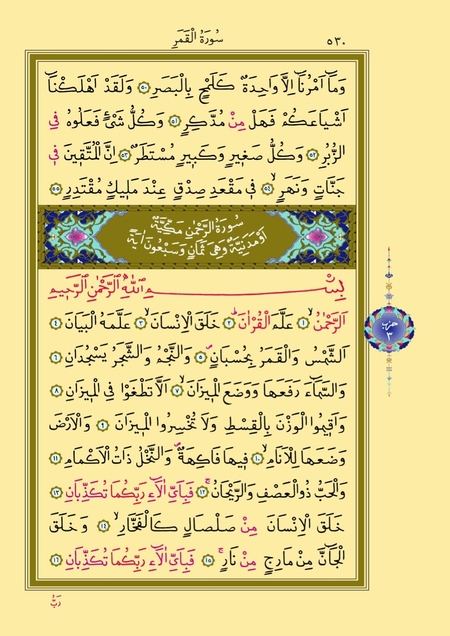 ٥٣٠ سُورَةُ الْقَمَرِ
وَمَٓا اَمْرُنَٓا اِلَّا وَاحِدَةٌ كَلَمْحٍ بِالْبَصَرِ ﴿٥٠﴾ وَلَقَدْ اَهْلَكْنَٓا
اَشْيَاعَكُمْ فَهَلْ مِنْ مُدَّكِرٍ ﴿٥١﴾ وَكُلُّ شَيْءٍ فَعَلُوهُ فِي
الزُّبُرِ ﴿٥٢﴾ وَكُلُّ صَغِيرٍ وَكَبِيرٍ مُسْتَطَرٌ ﴿٥٣﴾ اِنَّ الْمُتَّقِينَ فِي
جَنَّاتٍ وَنَهَرٍ ﴿٥٤﴾ فِي مَقْعَدِ صِدْقٍ عِنْدَ مَلِيكٍ مُقْتَدِرٍ ﴿٥٥﴾
سُورَةُ الرَّحْمٰنِ مَكِّيَّةٌ
اَوْ مَدَنِيَّةٌ وَهِيَ ثَمَانٍ وَسَبْعُونَ اٰيَةً
بِسْمِ اللّٰهِ الرَّحْمٰنِ الرَّحِيمِ
اَلرَّحْمٰنُ ﴿١﴾ عَلَّمَ الْقُرْاٰنَ ﴿٢﴾ خَلَقَ الْاِنْسَانَ ﴿٣﴾ عَلَّمَهُ الْبَيَانَ ﴿٤﴾
اَلشَّمْسُ وَالْقَمَرُ بِحُسْبَانٍ ﴿٥﴾ وَالنَّجْمُ وَالشَّجَرُ يَسْجُدَانِ ﴿٦﴾
حزب
٣
وَالسَّمَٓاءَ رَفَعَهَا وَوَضَعَ الْمِيزَانَ ﴿٧﴾ اَلَّا تَطْغَوْا فِي الْمِيزَانِ ﴿٨﴾
وَاَقِيمُوا الْوَزْنَ بِالْقِسْطِ وَلَا تُخْسِرُوا الْمِيزَانَ ﴿٩﴾ وَالْاَرْضَ
وَضَعَهَا لِلْاَنَامِ ﴿١٠﴾ فِيهَا فَاكِهَةٌ وَالنَّخْلُ ذَاتُ الْاَكْمَامِ ﴿١١﴾
وَالْحَبُّ ذُو الْعَصْفِ وَالرَّيْحَانُ ﴿١٢﴾ فَبِاَيِّ اٰلَٓاءِ رَبِّكُمَا تُكَذِّبَانِ ﴿١٣﴾
خَلَقَ الْاِنْسَانَ مِنْ صَلْصَالٍ كَالْفَخَّارِ ﴿١٤﴾ وَخَلَقَ
الْجَٓانَّ مِنْ مَارِجٍ مِنْ نَارٍ ﴿١٥﴾ فَبِاَيِّ اٰلَٓاءِ رَبِّكُمَا تُكَذِّبَانِ ﴿١٦﴾
رَبُّ